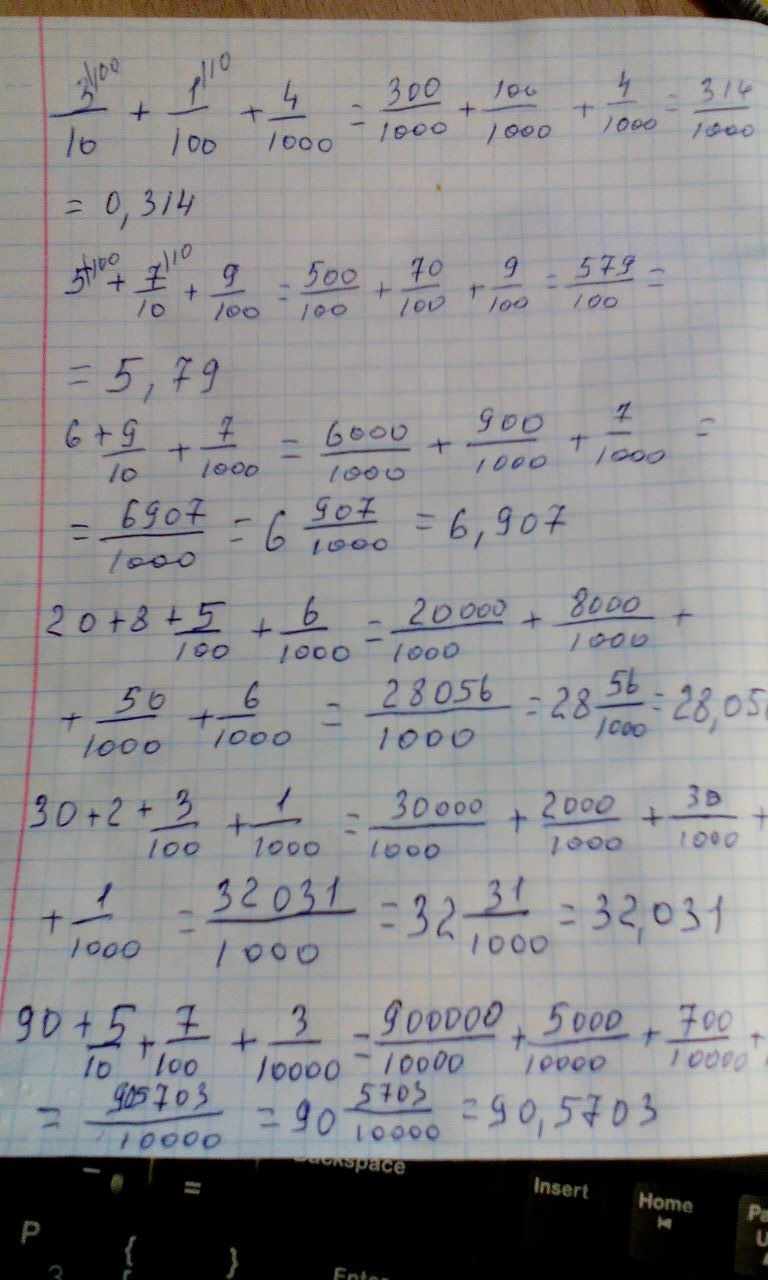 3|100/10 + 1|10/100 + 4/1000 = 300/1000 + 100/1000 + 4/1000 = 314/1000
= 0,314
5|100 + 7|10/10 + 9/100 = 500/100 + 70/100 + 9/100 = 579/100 =
= 5,79
6 + 9/10 + 7/1000 = 6000/1000 + 900/1000 + 7/1000 =
= 6907/1000 = 6 907/1000 = 6,907
20 + 8 + 5/100 + 6/1000 = 20000/1000 + 8000/1000 +
+ 50/1000 + 6/1000 = 28056/1000 = 28 56/1000 = 28,05
30 + 2 + 3/100 + 1/1000 = 30000/1000 + 2000/1000 + 30/1000 +
+ 1/1000 = 32031/1000 = 32 31/1000 = 32,031
90 + 5/10 + 7/100 + 3/10000 = 900000/10000 + 5000/10000 + 700/10000 +
= 905703/10000 = 90 5703/10000 = 90,5703
- = Backspace Insert Home
P { } Enter